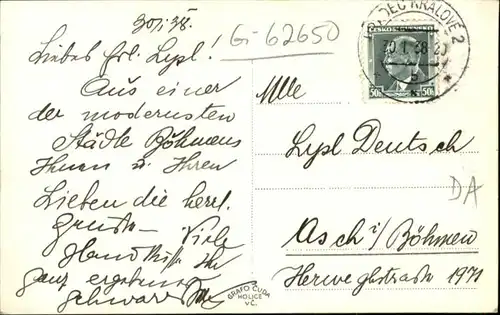 30/I 38.
Gi-62650
Liebes Frl. Lypl!
Aus einer
der modernsten
Städte Böhmens
Ihnen u. Ihren
Lieben die herzl.
Grüße — Viele
Ihr
ganz ergebener
Schwarz
HRADEC KRÁLOVÉ 2
30.I.38-20
ČESKOSLOVENSKO
50h 50h
Mlle
Lypl Deutsch
DA
Asch i/Böhmen
1971
GRAFO ČUDA
HOLICE
V Č.